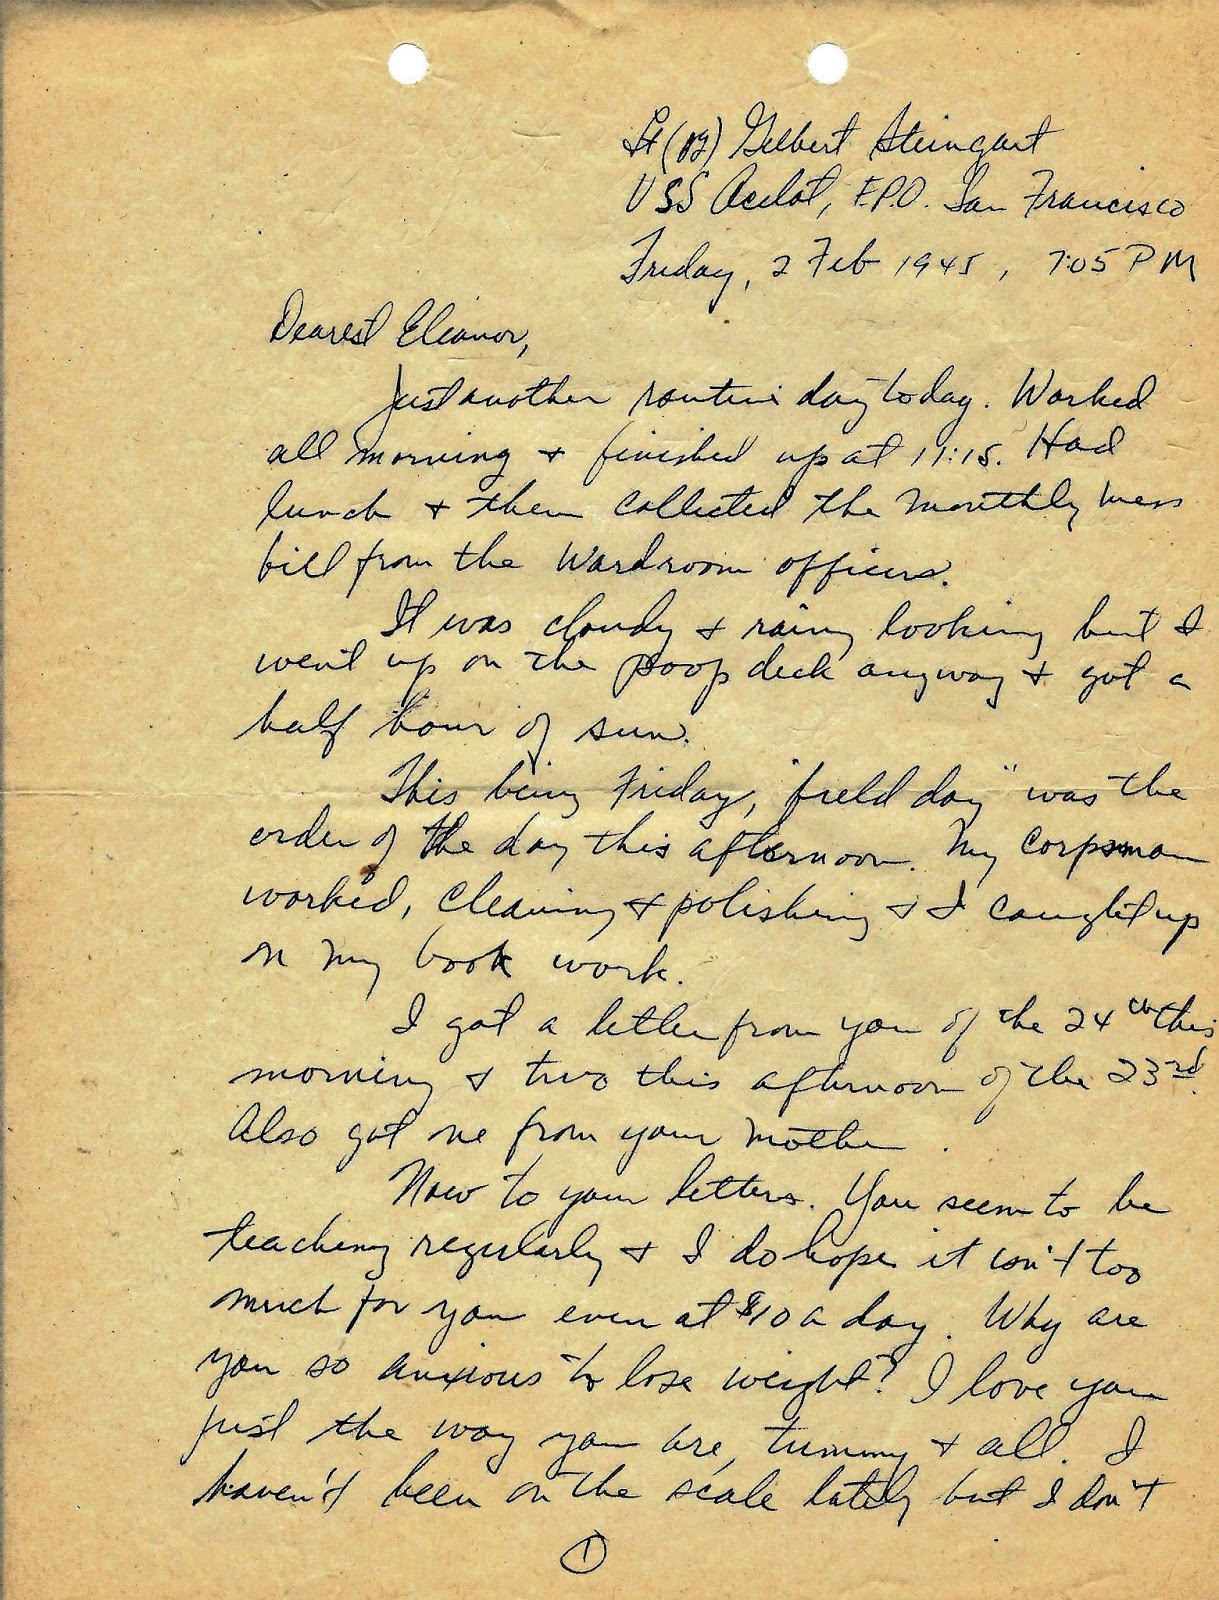 Lt (jg) Gilbert Steingart
USS Ocelot, F.P.O. San Francisco
Friday, 2 Feb 1945, 7:05 PM
Dearest Eleanor,
Just another routine day today. Worked
all morning + finished up at 11:15. Had
lunch + then collected the monthly mess
bill from the Wardroom officers.
It was cloudy + rainy looking but I
went up on the poop deck anyway + got a
half hour of sun.
This being Friday, "field day" was the
order of the day this afternoon. My corpsman
worked, cleaning + polishing + I caught up
on my book work.
I got a letter from you of the 24th this
morning + two this afternoon of the 23rd.
Also got one from your mother.
Now to your letters. You seem to be
teaching regularly + I do hope it isn't too
much for you even at $10 a day. Why are
you so anxious to lose weight? I love you
just the way you are, tummy + all. I
haven't been on the scale lately but I don't
1